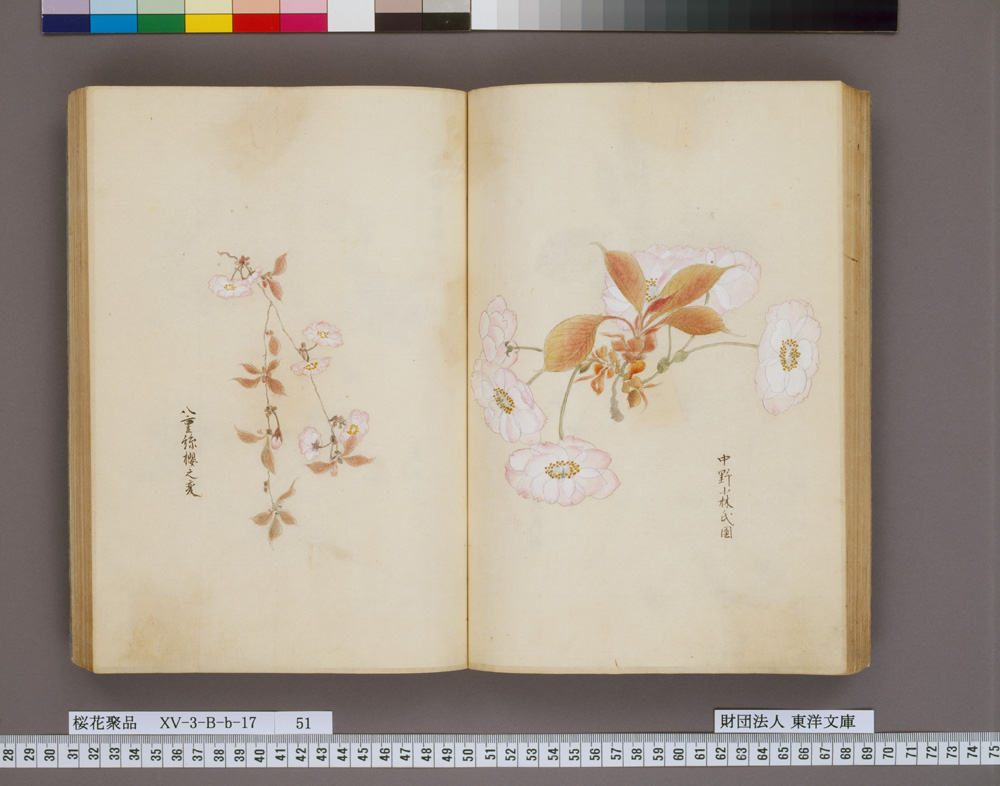 中野小林氏園
八重絲櫻之変
桜花聚品 XV-3-B-b-17 51
財団法人 東洋文庫
28 29 30 31 32 33 34 35 36 37 38 39 40 41 42 43 44 45 46 47 48 49 50 51 52 53 54 55 56 57 58 59 60 61 62 63 64 65 66 67 68 69 70 71 72 73 74 75